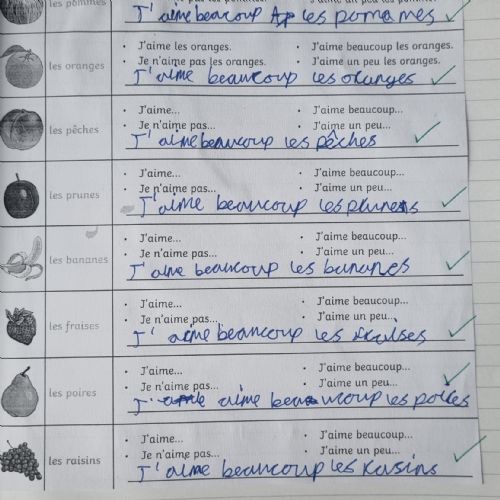 les pommes
J'aime beaucoup les pomames
les oranges
• J'aime les oranges. • J'aime beaucoup les oranges.
• Je n'aime pas les oranges. • J'aime un peu les oranges.
J'aime beaucoup les oranges
les pêches
• J'aime... • J'aime beaucoup...
• Je n'aime pas... • J'aime un peu...
J'aime beaucoup les pêches
les prunes
• J'aime... • J'aime beaucoup...
• Je n'aime pas... • J'aime un peu...
J'aime beaucoup les
les bananes
• J'aime... • J'aime beaucoup...
• Je n'aime pas... • J'aime un peu...
J'aime beaucoup les bananes
les fraises
• J'aime... • J'aime beaucoup...
• Je n'aime pas... • J'aime un peu...
J'aime beaucoup les
les poires
• J'aime... • J'aime beaucoup...
• Je n'aime pas... • J'aime un peu...
J' aime beaucoup les poires
les raisins
• J'aime... • J'aime beaucoup...
• Je n'aime pas... • J'aime un peu...
J'aime beaucoup les raisins